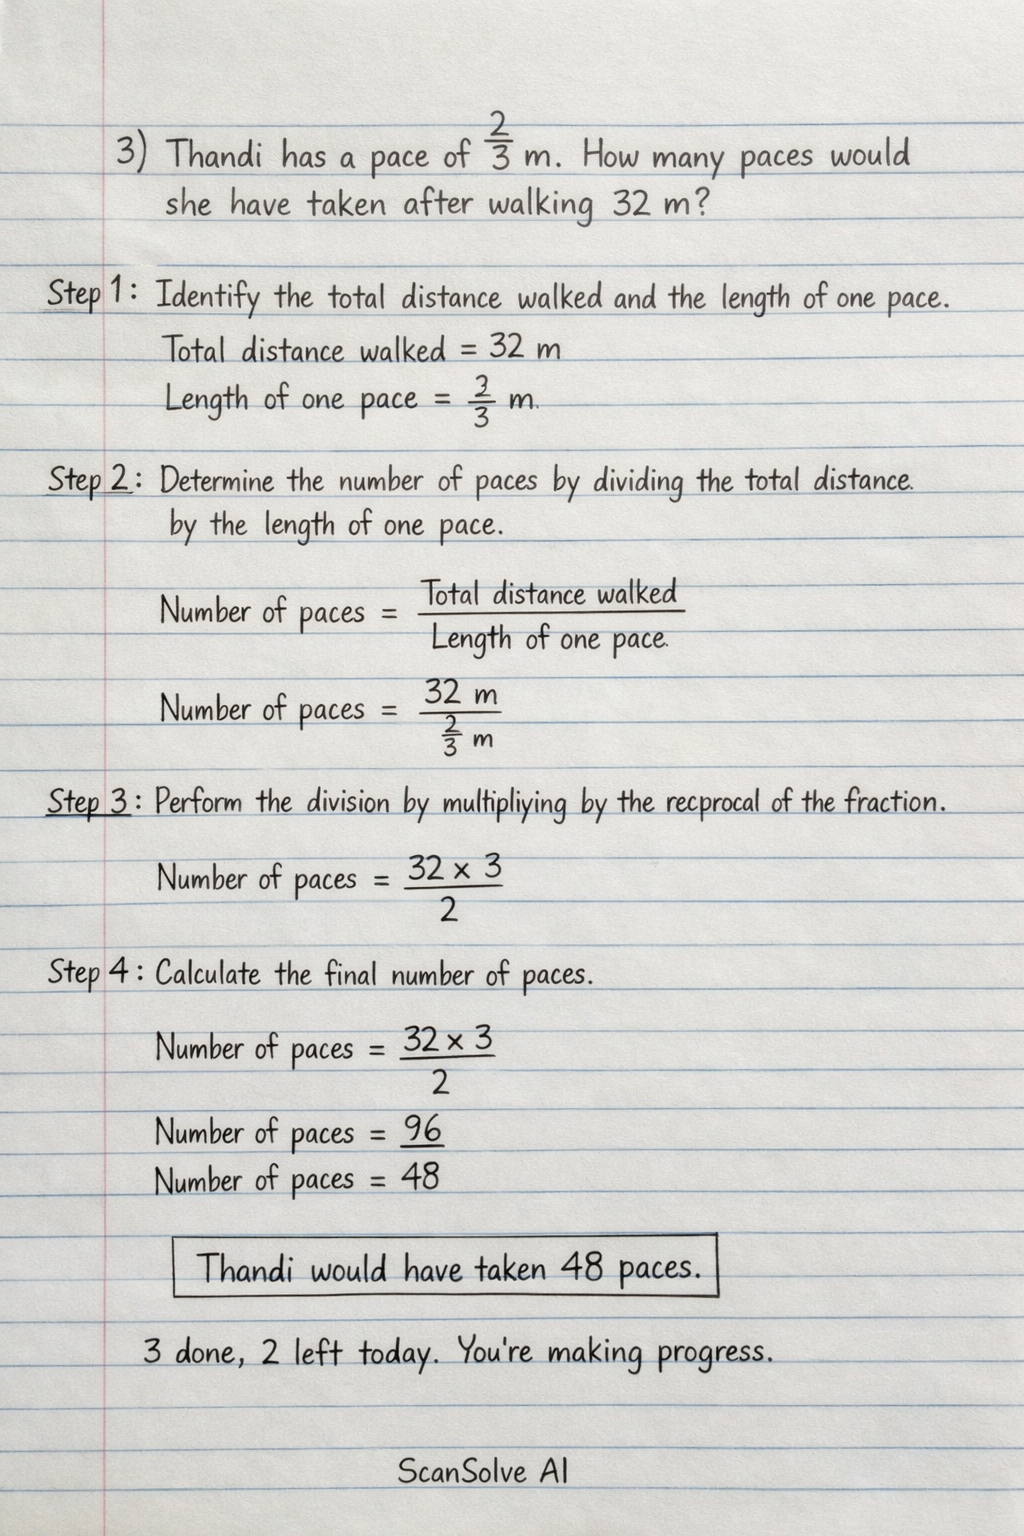 3) Thandi has a pace of 2/3 m. How many paces would
she have taken after walking 32 m?
Step 1: Identify the total distance walked and the length of one pace.
Total distance walked = 32 m
Length of one pace = 2/3 m.
Step 2: Determine the number of paces by dividing the total distance.
by the length of one pace.
Number of paces = Total distance walked / Length of one pace.
Number of paces = 32 m / 2/3 m
Step 3: Perform the division by multipliying by the recprocal of the fraction.
Number of paces = 32 × 3 / 2
Step 4: Calculate the final number of paces.
Number of paces = 32 × 3 / 2
Number of paces = 96
Number of paces = 48
Thandi would have taken 48 paces.
3 done, 2 left today. You're making progress.
ScanSolve AI